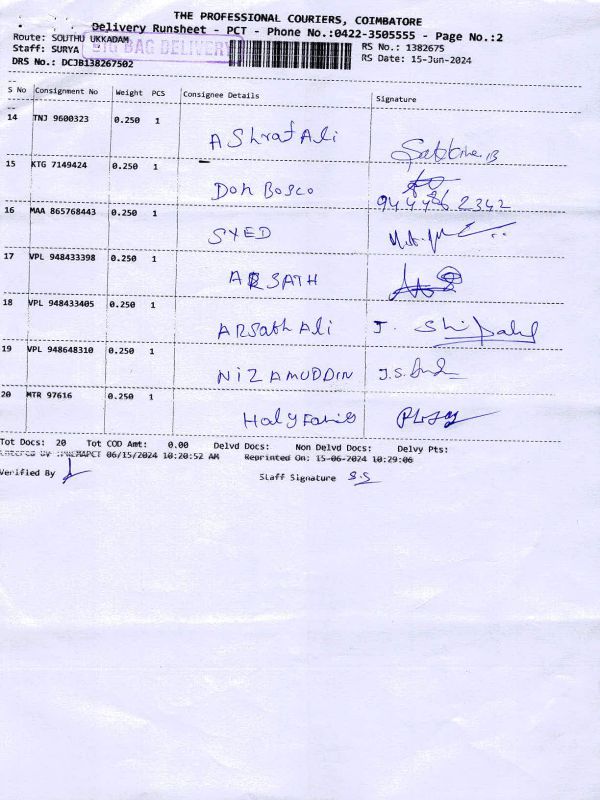 THE PROFESSIONAL COURIERS, COIMBATORE
Delivery Runsheet - PCT - Phone No.:0422-3505555 - Page No.:2
Route: SOUTHU UKKADAM
BIG BAG DELIVERY
RS No.: 1382675
Staff: SURYA
RS Date: 15-Jun-2024
DRS No.: DCJB138267502
S No Consignment No Weight PCS Consignee Details Signature
14 TNJ 9600323 0.250 1 AShraf Ali
15 KTG 7149424 0.250 1 Don Bosco
9444862342
16 MAA 865768443 0.250 1 SYED
17 VPL 948433398 0.250 1 ARSATH
18 VPL 948433405 0.250 1 Arsath Ali J.
19 VPL 948648310 0.250 1 NIZAMUDDIN J.S.
20 MTR 97616 0.250 1
Tot Docs: 20 Tot COD Amt: 0.00 Delvd Docs: Non Delvd Docs: Delvy Pts:
Entered By 06/15/2024 10:20:52 AM Reprinted On: 15-06-2024 10:29:06
Verified By Staff Signature S.S